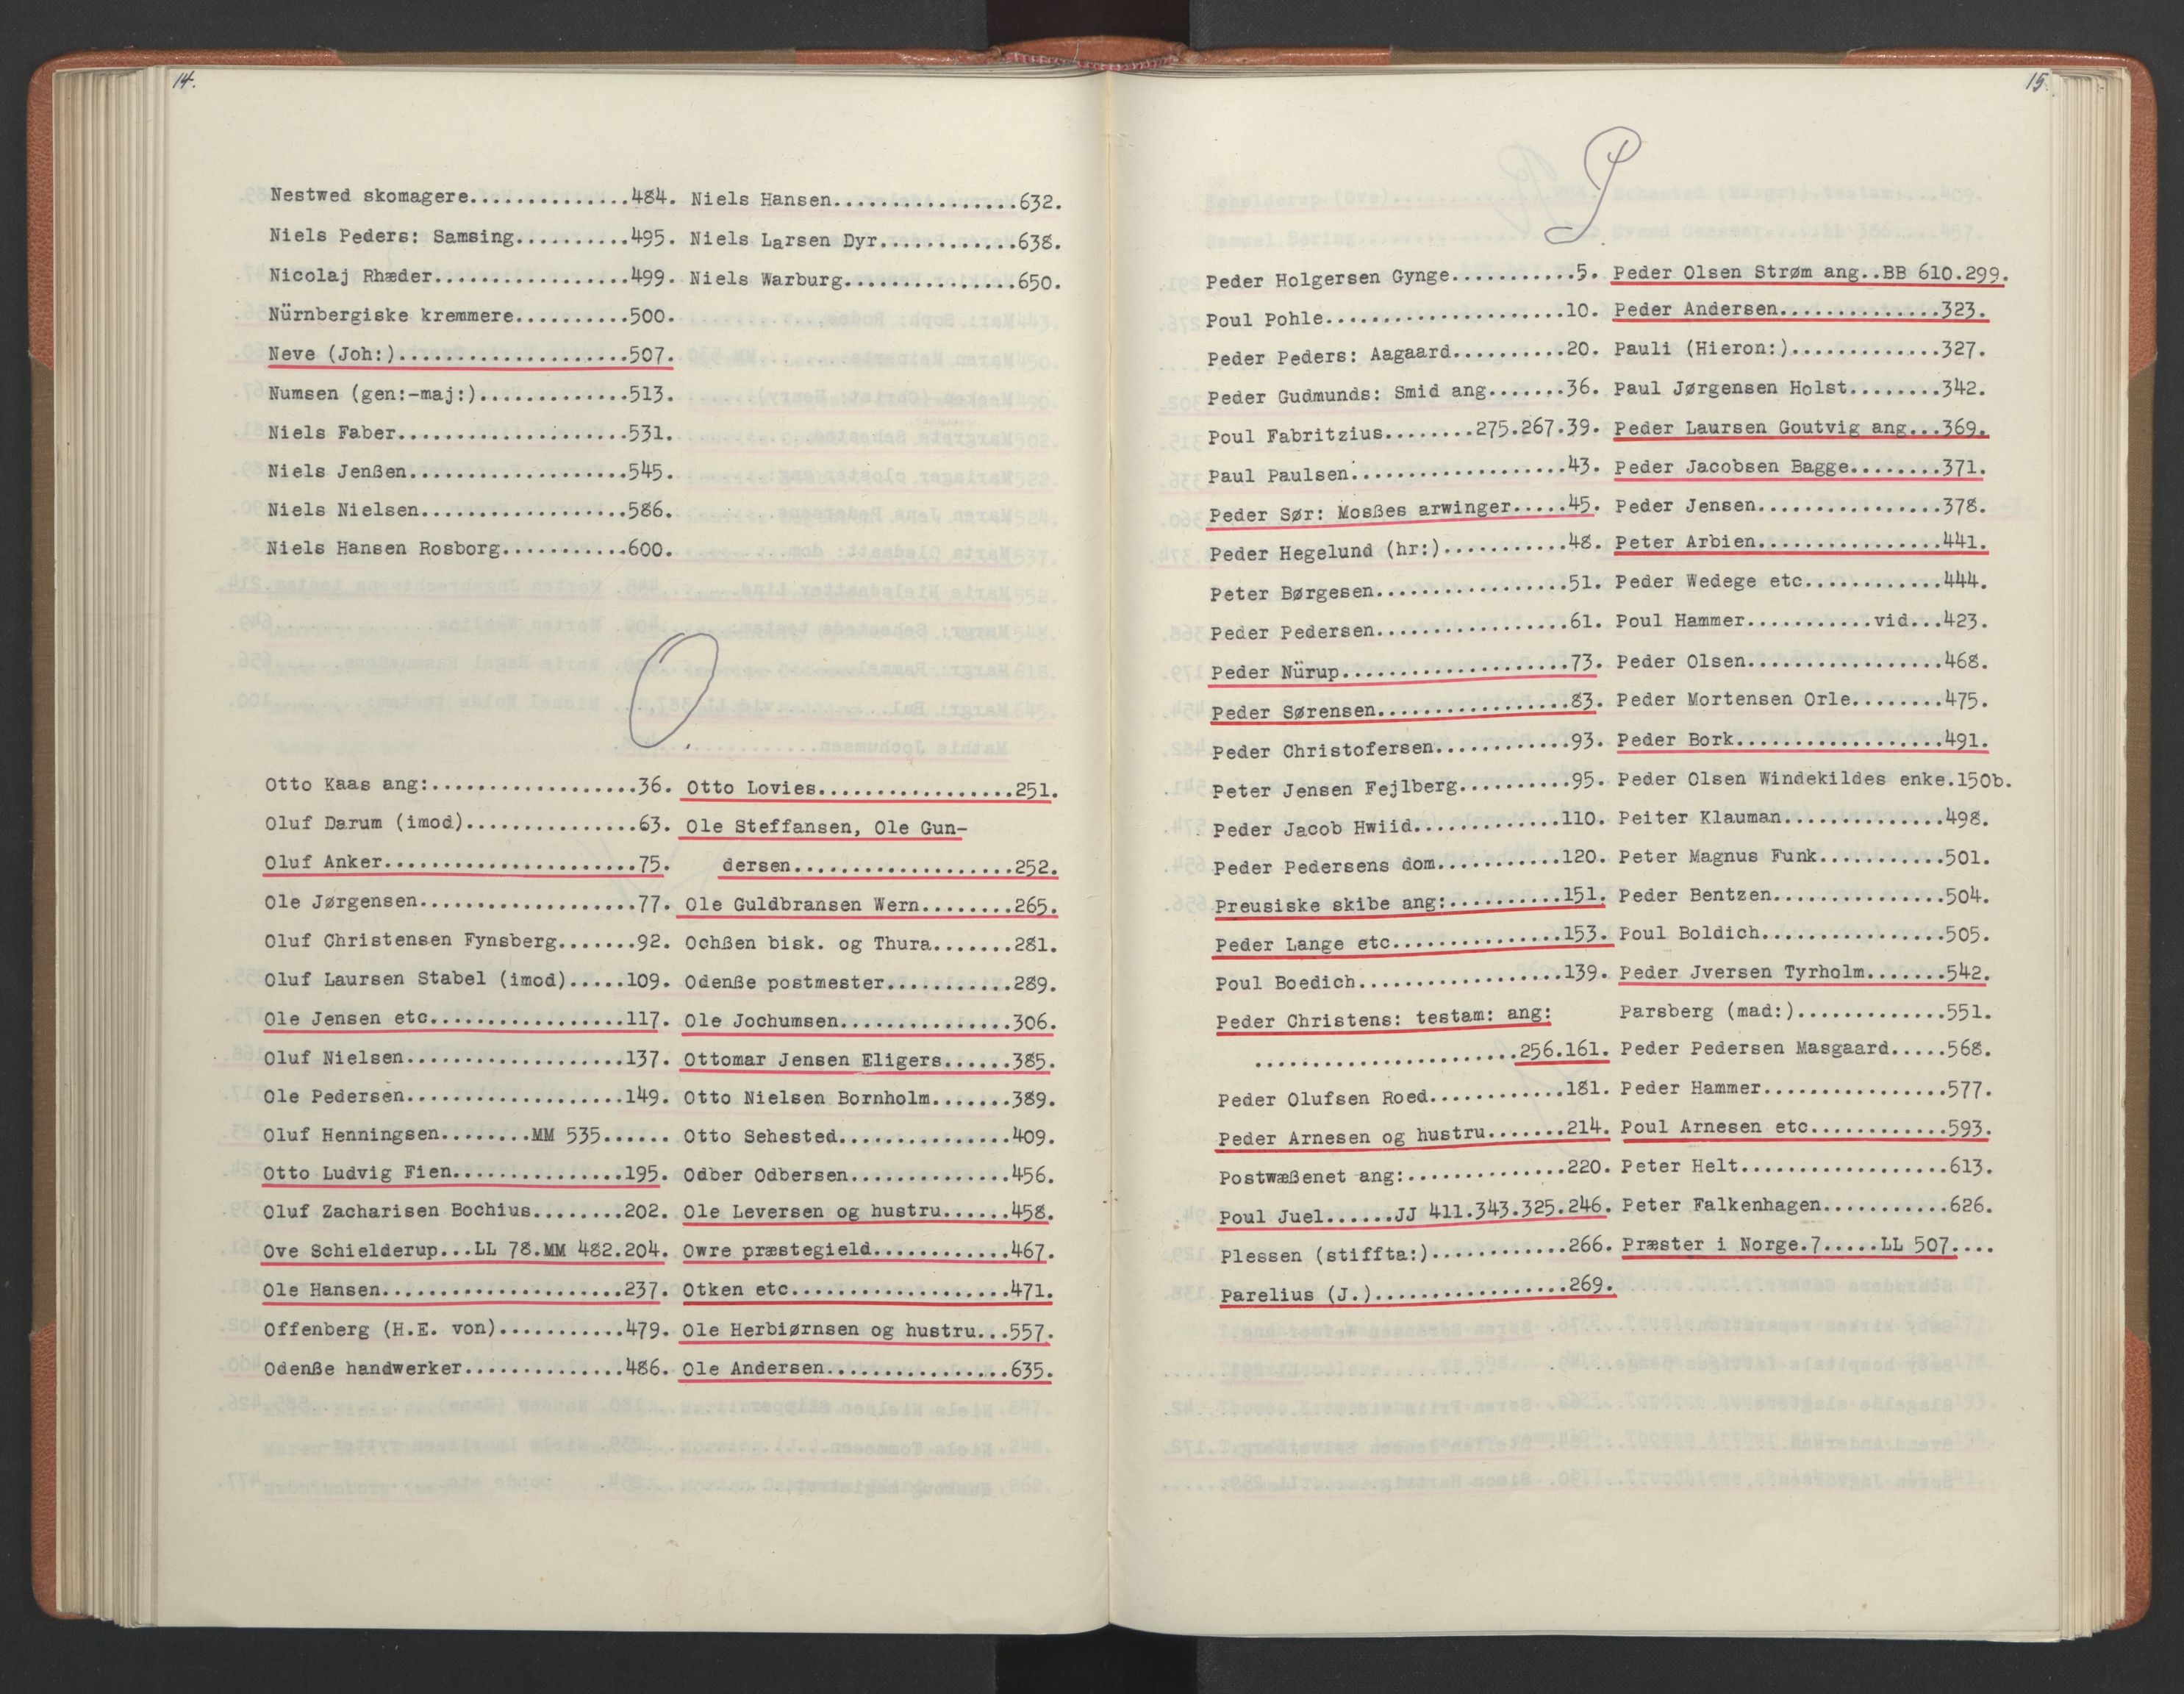 14.
Nestwed skomagere..............484.
Niels Peders: Samsing..........495.
Nicolaj Rhæder.................499.
Nürnbergiske kremmere..........500.
Neve (Joh:)....................507.
Numsen (gen:-maj:).............513.
Niels Faber....................531.
Niels Jenßen...................545.
Niels Nielsen..................586.
Niels Hansen Rosborg...........600.
Niels Hansen................632.
Niels Larsen Dyr............638.
Niels Warburg...............650.
O.
Otto Kaas ang:..................36.
Oluf Darum (imod)...............63.
Oluf Anker......................75.
Ole Jørgensen...................77.
Oluf Christensen Fynsberg.......92.
Oluf Laursen Stabel (imod).....109.
Ole Jensen etc.................117.
Oluf Nielsen...................137.
Ole Pedersen...................149.
Oluf Henningsen........MM 535......
Otto Ludvig Fien...............195.
Oluf Zacharisen Bochius........202.
Ove Schielderup...LL 78.MM 482.204.
Ole Hansen.....................237.
Offenberg (H.E. von)...........479.
Odenße handwerker..............486.
Otto Lovies.................251.
Ole Steffansen, Ole Gun-
dersen...................252.
Ole Guldbransen Wern........265.
Ochßen bisk. og Thura.......281.
Odenße postmester...........289.
Ole Jochumsen...............306.
Ottomar Jensen Eligers......385.
Otto Nielsen Bornholm.......389.
Otto Sehested...............409.
Odber Odbersen..............456.
Ole Leversen og hustru......458.
Owre præstegield............467.
Otken etc...................471.
Ole Herbiørnsen og hustru...557.
Ole Andersen................635.
15.
P.
Peder Holgersen Gynge...........5.
Poul Pohle.....................10.
Peder Peders: Aagaard..........20.
Peder Gudmunds: Smid ang.......36.
Poul Fabritzius........275.267.39.
Paul Paulsen...................43.
Peder Sør: Mosßes arwinger.....45.
Peder Hegelund (hr:)...........48.
Peter Børgesen.................51.
Peder Pedersen.................61.
Peder Nürup....................73.
Peder Sørensen.................83.
Peder Christofersen............93.
Peter Jensen Fejlberg..........95.
Peder Jacob Hwiid.............110.
Peder Pedersens dom...........120.
Preusiske skibe ang:..........151.
Peder Lange etc...............153.
Poul Boedich..................139.
Peder Christens: testam: ang:
.......................256.161.
Peder Olufsen Roed............181.
Peder Arnesen og hustru.......214.
Postwæßenet ang:..............220.
Poul Juel......JJ 411.343.325.246.
Plessen (stiffta:)............266.
Parelius (J.).................269.
Peder Olsen Strøm ang..BB 610.299.
Peder Andersen..............323.
Pauli (Hieron:).............327.
Paul Jørgensen Holst........342.
Peder Laursen Goutvig ang...369.
Peder Jacobsen Bagge........371.
Peder Jensen................378.
Peter Arbien................441.
Peder Wedege etc............444.
Poul Hammer...........vid...423.
Peder Olsen.................468.
Peder Mortensen Orle........475.
Peder Bork..................491.
Peder Olsen Windekildes enke.150b.
Peiter Klauman..............498.
Peter Magnus Funk...........501.
Peder Bentzen...............504.
Poul Boldich................505.
Peder Jversen Tyrholm.......542.
Parsberg (mad:).............551.
Peder Pedersen Masgaard.....568.
Peder Hammer................577.
Poul Arnesen etc............593.
Peter Helt..................613.
Peter Falkenhagen...........626.
Præster i Norge.7.....LL 507....